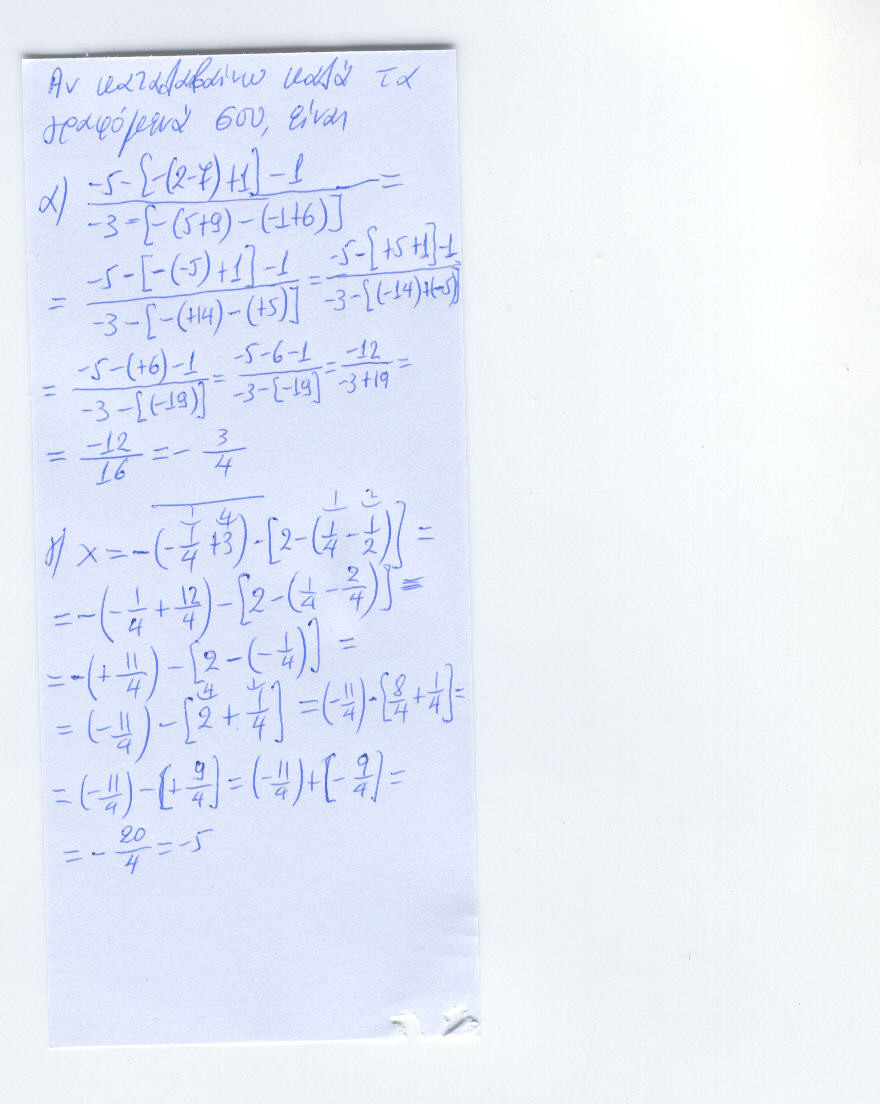 Αν καταλαβαίνω καλά τα
γραφόμενά σου, είναι
α) \frac{-5-[-(2-7)+1]-1}{-3-[-(5+9)-(-1+6)]} =
= \frac{-5-[-(-5)+1]-1}{-3-[-(+14)-(+5)]} = \frac{-5-[+5+1]-1}{-3-[(-14)+(-5)]}
= \frac{-5-(+6)-1}{-3-[(-19)]} = \frac{-5-6-1}{-3-[-19]} = \frac{-12}{-3+19} =
= \frac{-12}{16} = -\frac{3}{4}
γ) x = -(-\frac{1}{4}+3)-[2-(\frac{1}{4}-\frac{1}{2})] =
= -(-\frac{1}{4}+\frac{12}{4})-[2-(\frac{1}{4}-\frac{2}{4})] =
= -(+\frac{11}{4})-[2-(-\frac{1}{4})] =
= (-\frac{11}{4})-[2+\frac{1}{4}] = (-\frac{11}{4})-[\frac{8}{4}+\frac{1}{4}] =
= (-\frac{11}{4})-[+\frac{9}{4}] = (-\frac{11}{4})+[-\frac{9}{4}] =
= -\frac{20}{4} = -5